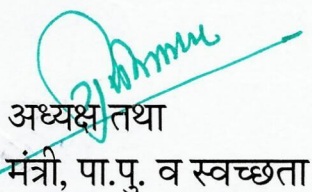 अध्यक्ष तथा
मंत्री, पा.पु. व स्वच्छता